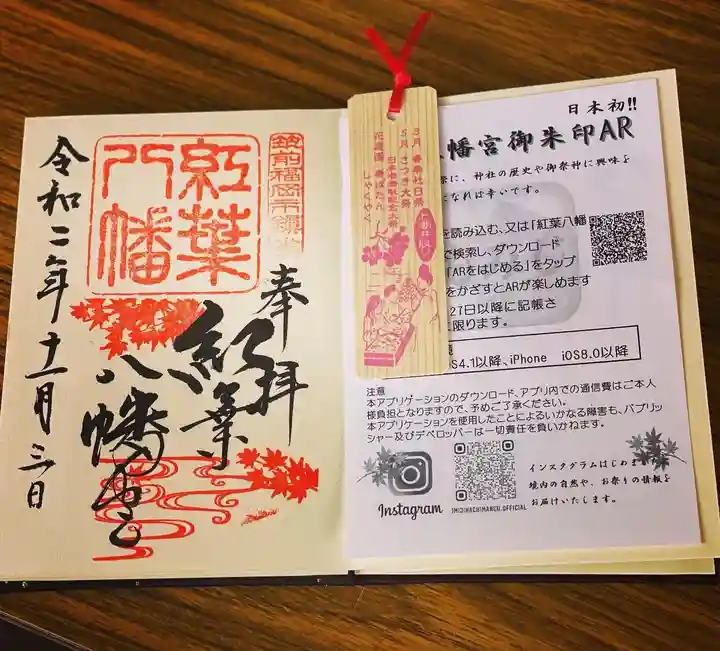 奉拝
紅葉
八幡宮
令和二年十一月三日
紅葉
八幡
日本初!!
幡宮御朱印AR
に、神社の歴史や御祭神に興味を
になれば幸いです。
を読み込む、又は「紅葉八幡
で検索し、ダウンロード
「ARをはじめる」をタップ
をかざすとARが楽しめます
27日以降に記帳さ
に限ります。
OS4.1以降、iPhone iOS8.0以降
注意
本アプリケーションのダウンロード、アプリ内での通信費はご本人
様負担となりますので、予めご了承ください。
本アプリケーションを使用したことによるいかなる障害も、パブリッ
シャー及びデベロッパーは一切責任を負いかねます。
インスタグラムはじめま
境内の自然や、お祭りの情報を
お届けいたします。
Instagram